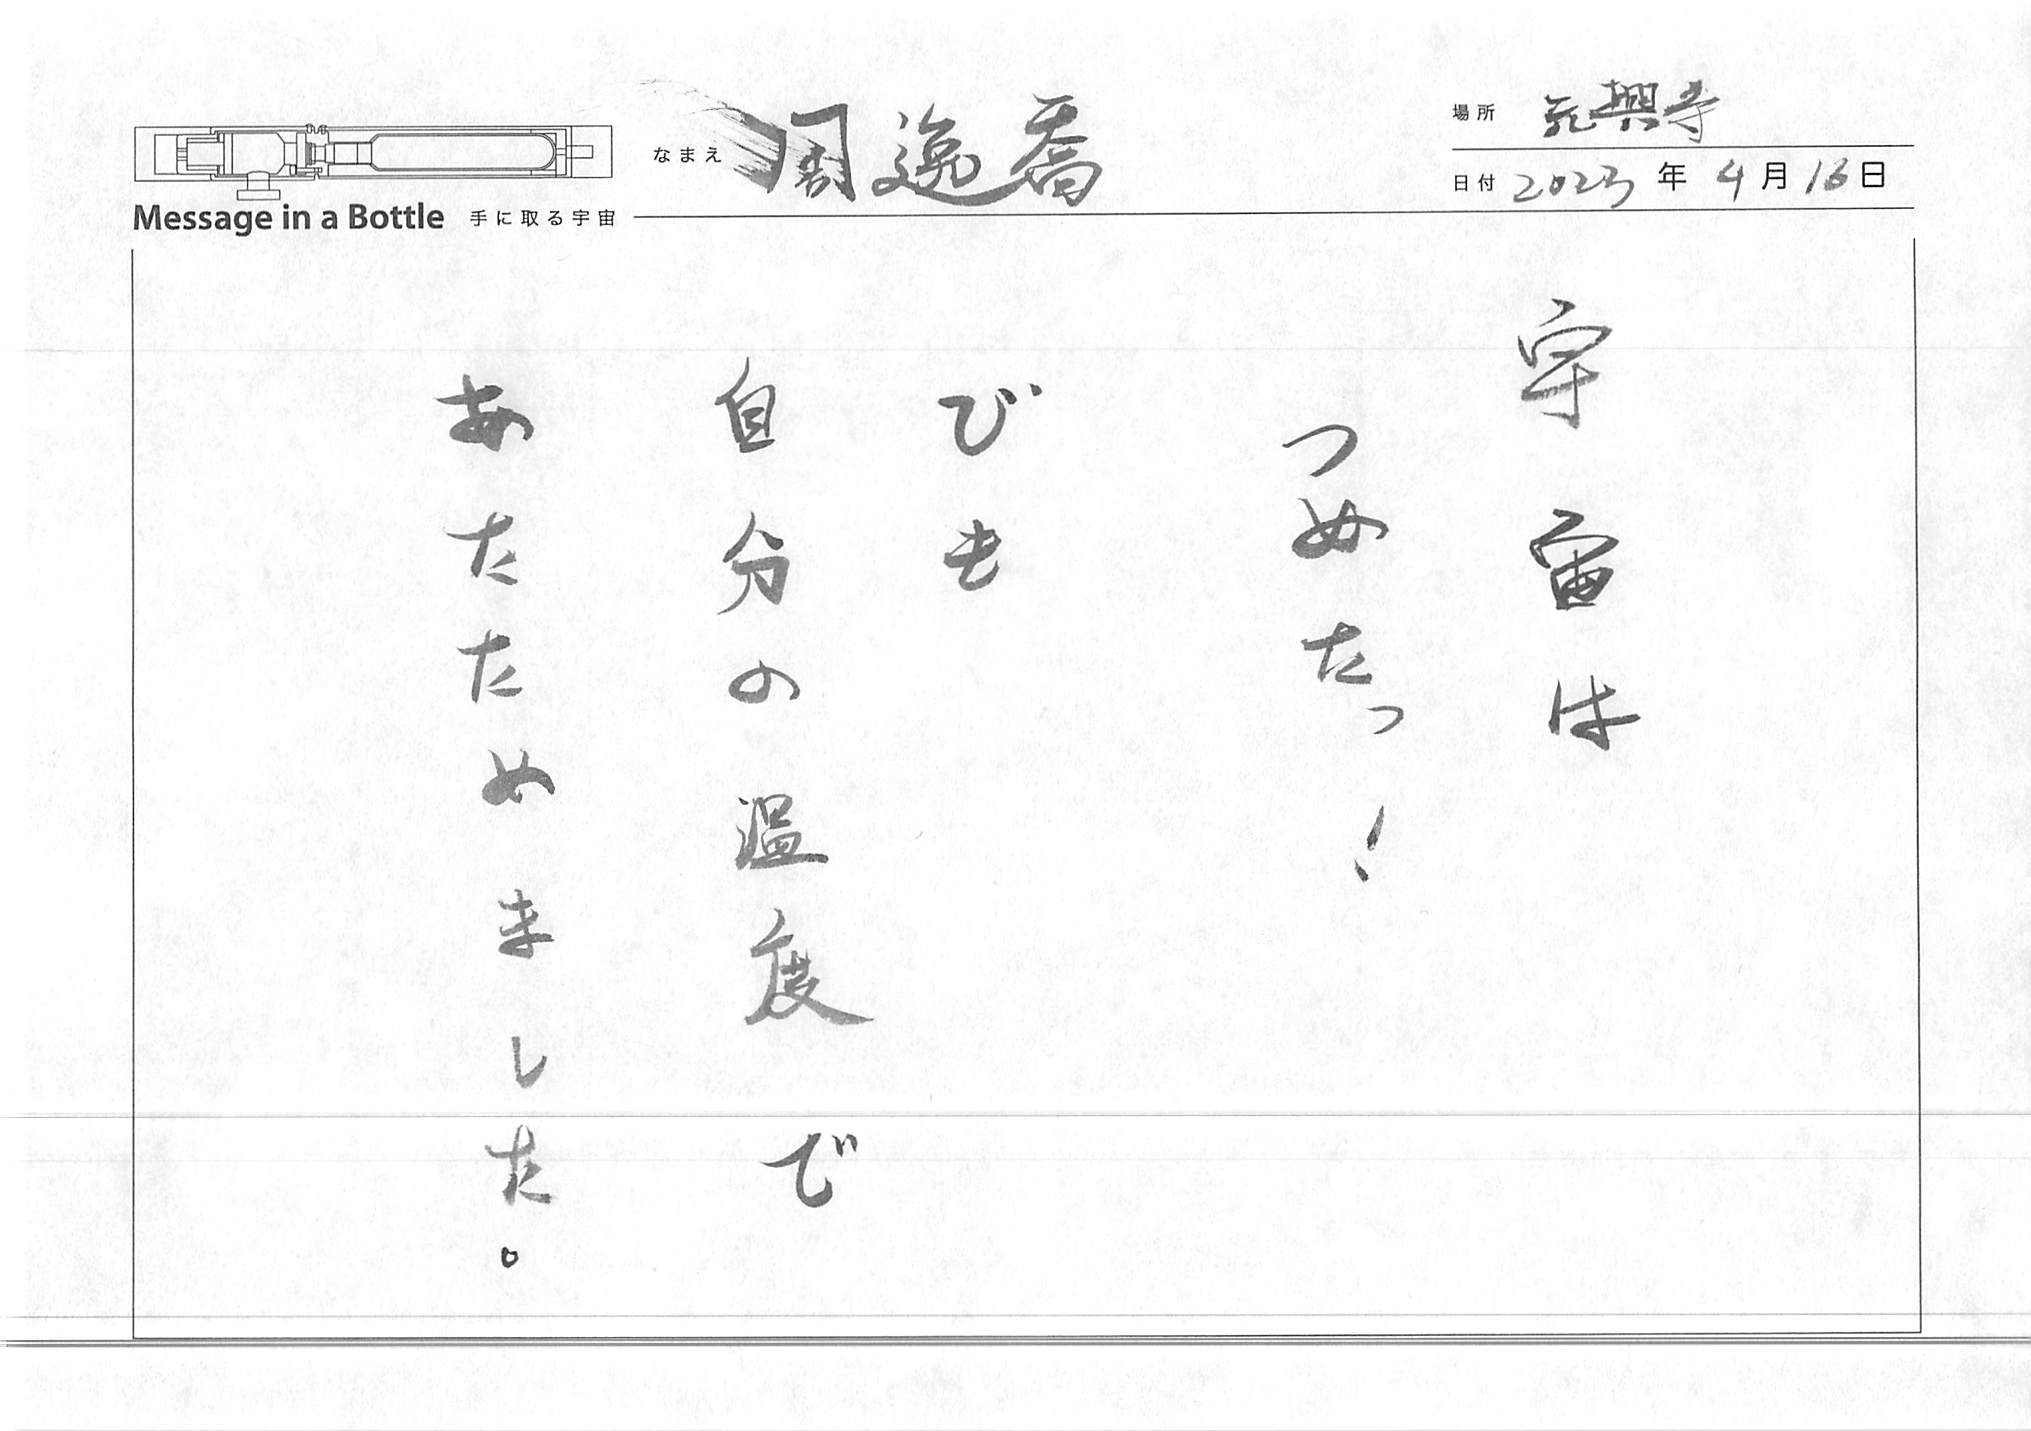 Message in a Bottle 手に取る宇宙
なまえ 周逸喬
場所 元興寺
日付 2023年4月16日
宇宙は
つめたっ!
びも
自分の温度で
あたためました。